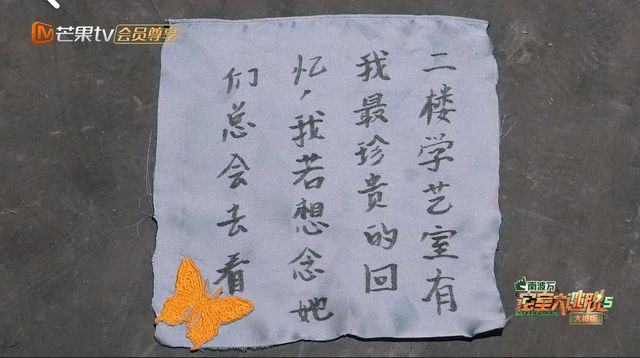 芒果tv 会员尊享
二楼学艺室有
我最珍贵的回
忆，我若想念她
们总会去看
南波万
密室大逃脱5
大神版